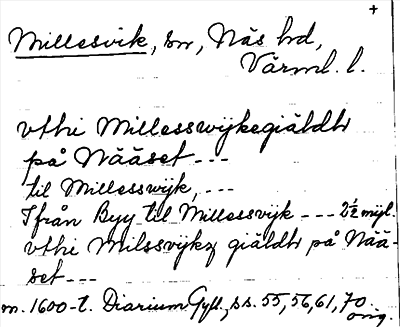 +
Millesvik, sn, Näs hd,
Värml. l.
vthi Millesswijkegiäldh
på Nääset ---
til Millesswijk, ---
Ifrån Byy til Millessvijk --- 2½ mijl.
vthi Milssvijkz giäldh på Nää-
set ---
m. 1600-t. Diarium Gyll., ss. 55, 56, 61, 70.
orig.